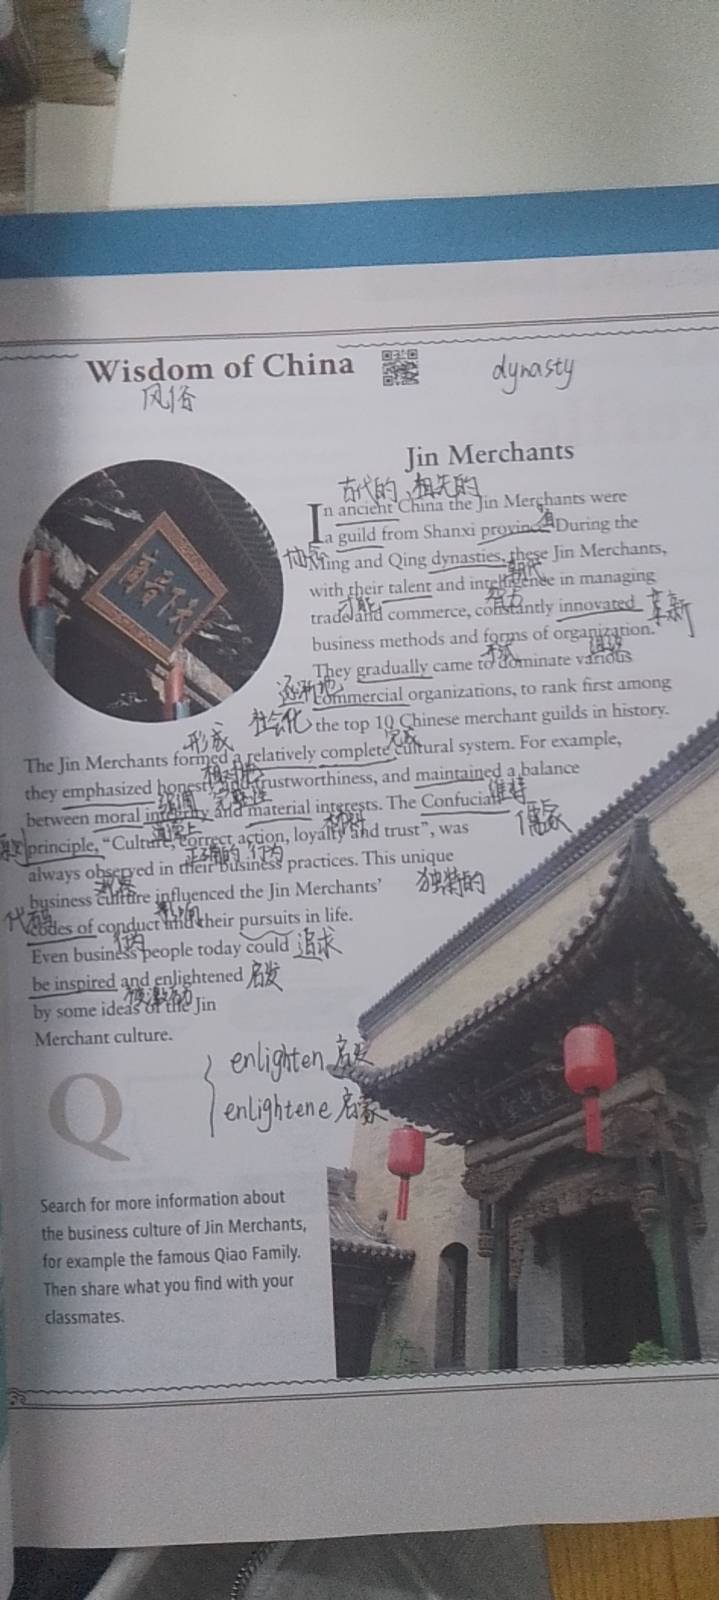 Wisdom of China
dynasty
风俗
Jin Merchants
古代的、祖先的
In ancient China the Jin Merchants were
a guild from Shanxi province. During the
Ming and Qing dynasties, these Jin Merchants,
朝代
with their talent and intelligence in managing
才能
智力
trade and commerce, constantly innovated
革新
business methods and forms of organization.
形式
组织
They gradually came to dominate various
逐渐地
commercial organizations, to rank first among
社会化
the top 10 Chinese merchant guilds in history.
形成
完成
The Jin Merchants formed a relatively complete cultural system. For example,
相对地
they emphasized honesty and trustworthiness, and maintained a balance
强调
完整性
维持
between moral integrity and material interests. The Confucian
道德上
材料
儒家
principle, “Culture, correct action, loyalty and trust”, was
正确的
行为
always observed in their business practices. This unique
观察
独特的
business culture influenced the Jin Merchants’
代码
影响
codes of conduct and their pursuits in life.
行为
追求
Even business people today could
be inspired and enlightened
启发
被激励
by some ideas of the Jin
Merchant culture.
enlighten 启发
enlightene 启蒙
Q
Search for more information about
the business culture of Jin Merchants,
for example the famous Qiao Family.
Then share what you find with your
classmates.
天下晋商